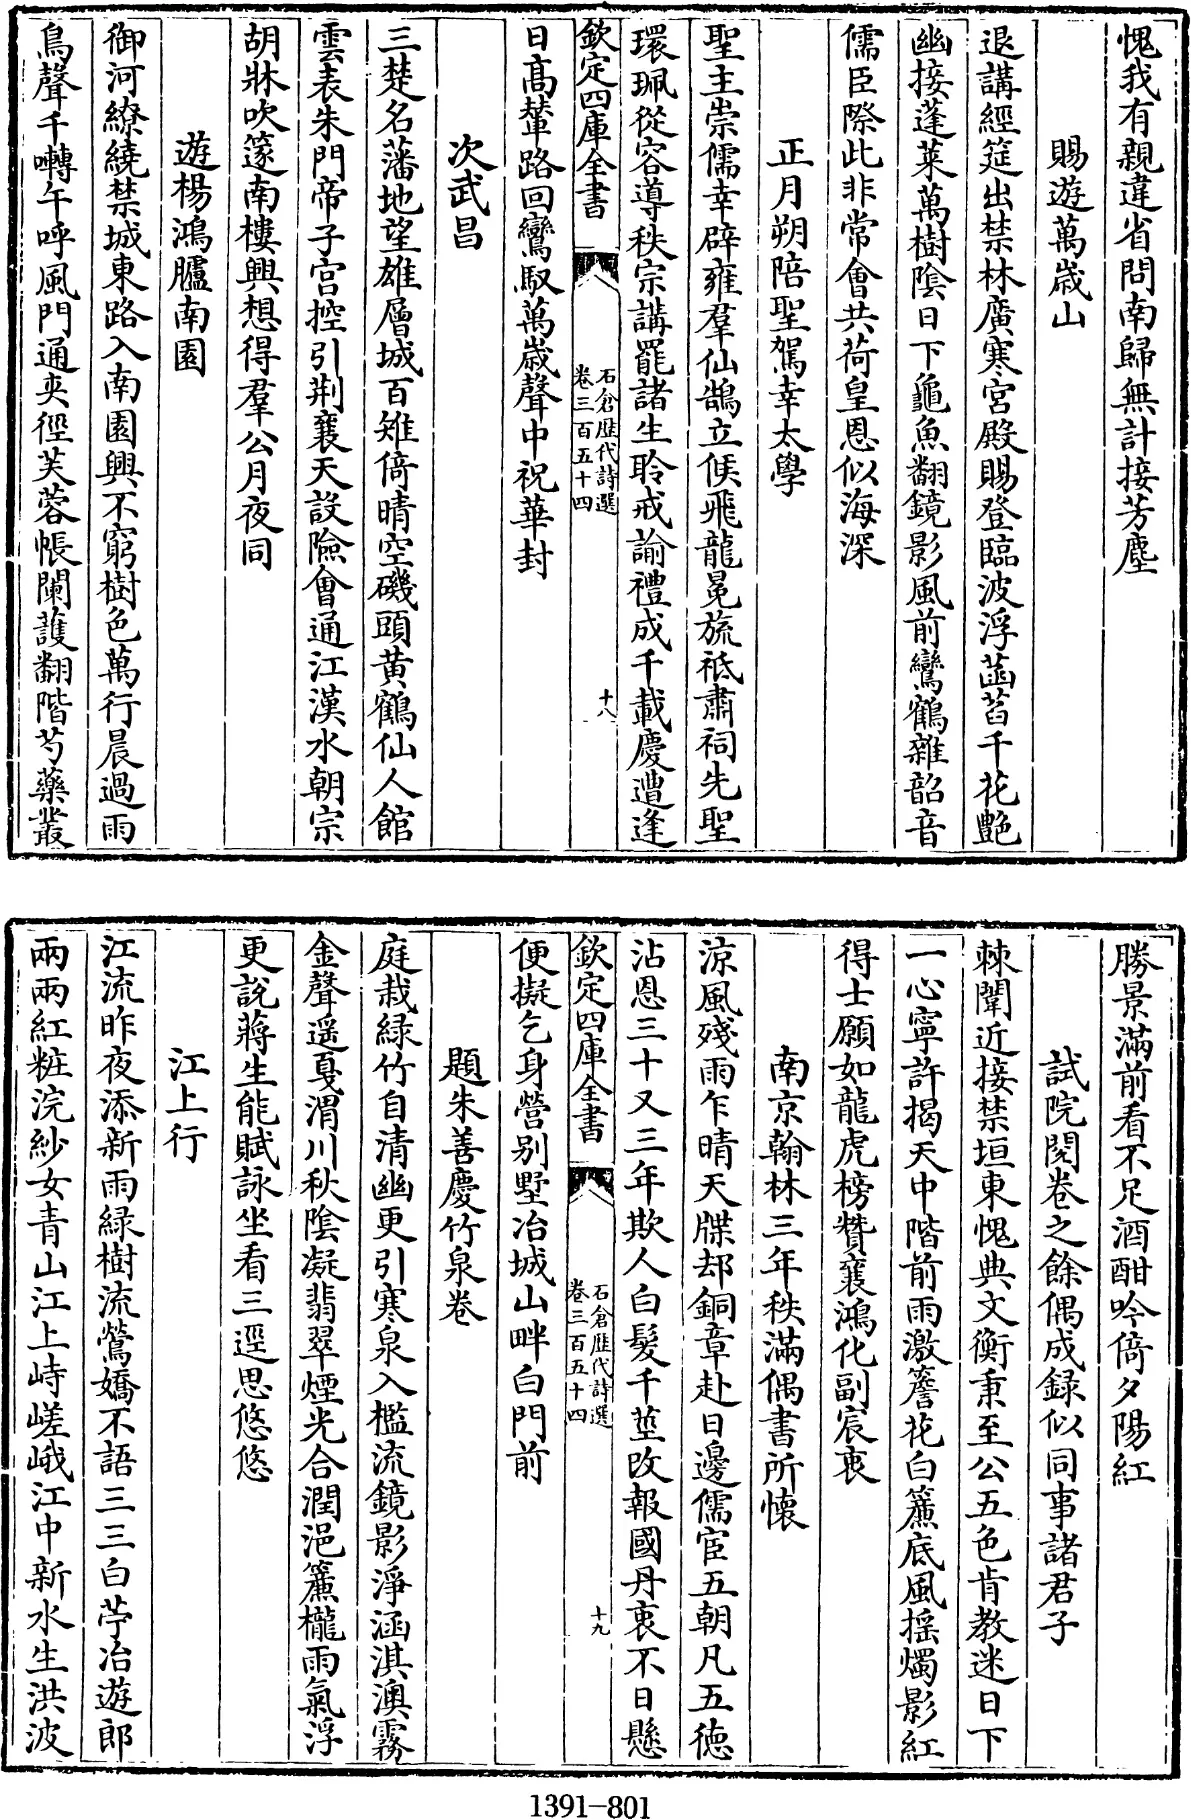 愧我有親違省問南歸無計接芳塵
賜遊萬歲山
退講經筵出禁林廣寒宮殿賜登臨波浮菡萏千花艷
幽接蓬萊萬樹陰日下龜魚翻鏡影風前鸞鶴雜韶音
儒臣際此非常會共荷皇恩似海深
正月朔陪聖駕幸太學
聖主崇儒幸辟雍羣仙鵠立候飛龍冕旒祗肅祠先聖
環珮從容導秩宗講罷諸生聆戒諭禮成千載慶遭逢
欽定四庫全書
石倉歷代詩選
卷三百五十四
十八
日高輦路回鸞馭萬歲聲中祝華封
次武昌
三楚名藩地望雄層城百雉倚晴空磯頭黃鶴仙人館
雲表朱門帝子宮控引荆襄天設險會通江漢水朝宗
胡牀吹篴南樓興想得羣公月夜同
遊楊鴻臚南園
御河繚繞禁城東路入南園興不窮樹色萬行晨過雨
鳥聲千囀午呼風門通夾徑芙蓉帳闌護翻階芍藥叢
勝景滿前看不足酒酣吟倚夕陽紅
試院閱卷之餘偶成録似同事諸君子
棘闈近接禁垣東愧典文衡秉至公五色肯教迷日下
一心寧許揭天中階前雨激簷花白簾底風揺燭影紅
得士願如龍虎榜贊襄鴻化副宸衷
南京翰林三年秩滿偶書所懷
涼風殘雨乍晴天牒却銅章赴日邊儒宦五朝凡五徳
沾恩三十又三年欺人白髮千莖改報國丹衷不日懸
欽定四庫全書
石倉歷代詩選
卷三百五十四
十九
便擬乞身營别墅冶城山畔白門前
題朱善慶竹泉卷
庭栽緑竹自清幽更引寒泉入檻流鏡影淨涵淇澳霧
金聲遥戛渭川秋陰凝翡翠煙光合潤浥簾櫳雨氣浮
更說蔣生能賦詠坐看三逕思悠悠
江上行
江流昨夜添新雨緑樹流鶯嬌不語三三白苧冶遊郎
兩兩紅粧浣紗女青山江上峙嵯峨江中新水生洪波
1391-801